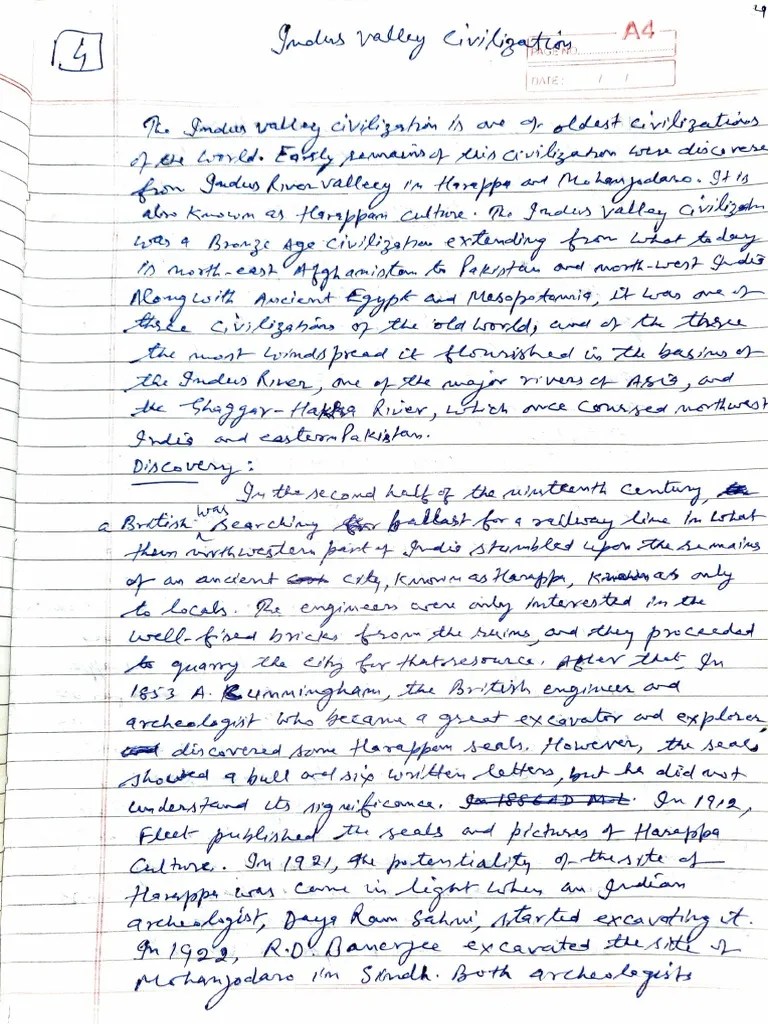 4
4
Indus Valley Civilization
A4
PAGE NO.
DATE: / /
The Indus valley civilization is one of oldest civilizations
of the world. Early remains of this civilization were discovere
from Indus River valley in Harappa and Mohanjodaro. It is
also known as Harappan culture. The Indus valley Civilizatn
was a Bronze Age civilization extending from what today
is north-east Afghanistan to Pakistan and north-west India
Along with Ancient Egypt and Mesopotamia, it was one of
three civilizations of the old world, and of the three
the most windspread it flourished in the basins of
the Indus River, one of the major rivers of Asia, and
the Ghaggar-Hakra River, which once coursed northwest
India and eastern Pakistan.
Discovery:
In the second half of the nineteenth century,
a British was searching ballast for a railway line in what
then northwestern part of India stumbled upon the remains
of an ancient city, known as Harappa, known as only
to locals. The engineers were only interested in the
well-fired bricks from the ruins, and they proceeded
to quarry the city for that resource. After that, In
1853 A. Cunningham, the British engineer and
archeologist who became a great excavator and explorer
discovered some Harappan seals. However, the seals
showed a bull and six written letters, but he did not
understand its significance. In 1886 AD M.L. In 1912,
Fleet published the seals and pictures of Harappa
Culture. In 1921, the potentiality of the site of
Harappa was came in light when an Indian
archeologist, Daya Ram Sahni, started excavating it.
In 1922, R.D. Banerjee excavated the site of
Mohanjodaro in Sindh. Both archeologists